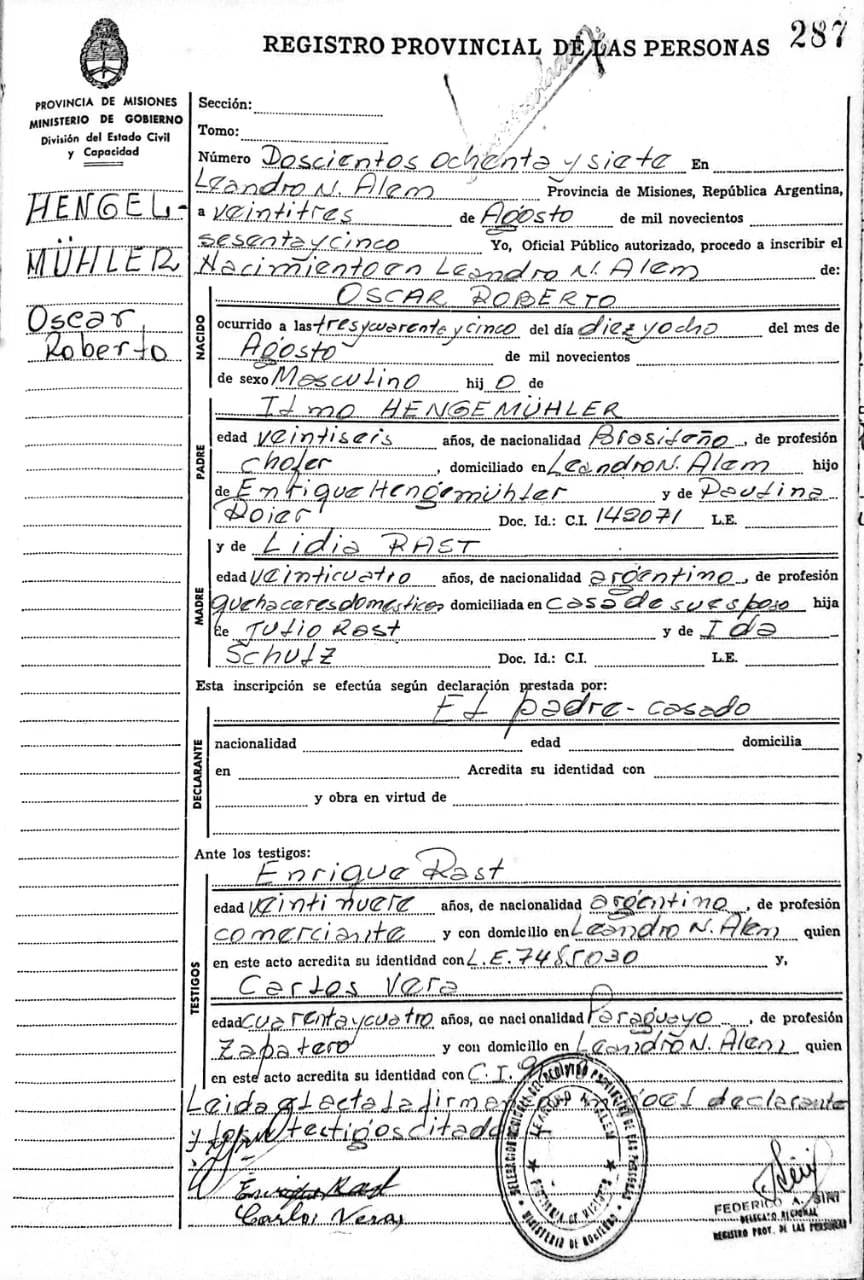 287
REGISTRO PROVINCIAL DE LAS PERSONAS
PROVINCIA DE MISIONES
MINISTERIO DE GOBIERNO
División del Estado Civil
y Capacidad
HENGEL-
MÜHLER
Oscar
Roberto
Sección:
Tomo:
Número Doscientos ochenta y siete En
Leandro N. Alem Provincia de Misiones, República Argentina,
a veintitres de Agosto de mil novecientos
sesenta y cinco Yo, Oficial Público autorizado, procedo a inscribir el
Nacimiento en Leandro N. Alem de:
NACIDO
OSCAR ROBERTO
ocurrido a las tres y cuarenta y cinco del día diez y ocho del mes de
Agosto de mil novecientos
de sexo Masculino hij o de
PADRE
Ilmo HENGEMÜHLER
edad veintiseis años, de nacionalidad Brasileño, de profesión
chofer, domiciliado en Leandro N. Alem hijo
de Enrique Hengemühler y de Paulina
Doc. Id.: C.I. 149071 L.E.
MADRE
y de Lidia RAST
edad veinticuatro años, de nacionalidad argentino, de profesión
quehaceres domesticos domiciliada en casa de su esposo hija
de Julio Rast y de Ida
Schulz Doc. Id.: C.I. L.E.
Esta inscripción se efectúa según declaración prestada por:
DECLARANTE
El padre - casado
nacionalidad edad domicilia
en Acredita su identidad con
y obra en virtud de
Ante los testigos:
TESTIGOS
Enrique Rast
edad veintinueve años, de nacionalidad argentino, de profesión
comerciante y con domicilio en Leandro N. Alem quien
en este acto acredita su identidad con L.E. 7485030 y,
Carlos Vera
edad cuarenta y cuatro años, de nacionalidad Paraguayo, de profesión
Zapatero y con domicilio en Leandro N. Alem quien
en este acto acredita su identidad con C.I.
Leida el acta la firman declarante
y testigos citado
Enrique Rast
Carlos Vera
LEANDRO N. ALEM
PROVINCIA DE MISIONES
MINISTERIO DE GOBIERNO
FEDERICO A. SINI
DELEGADO REGIONAL
REGISTRO PROV. DE LAS PERSONAS